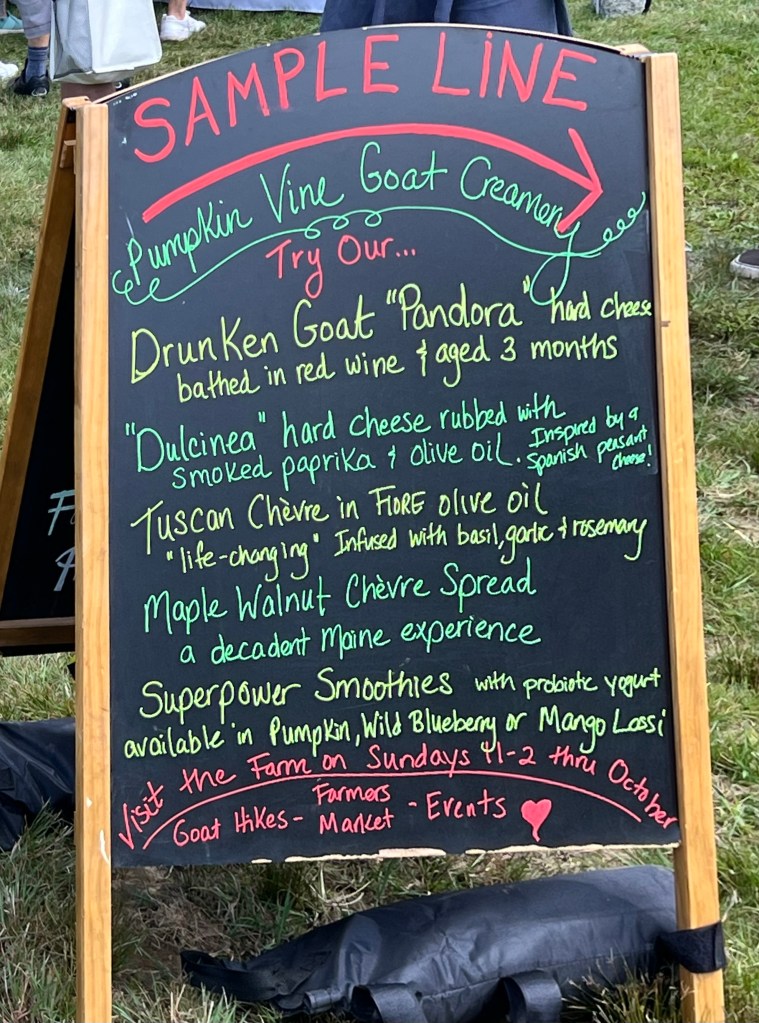 SAMPLE LINE
Pumpkin Vine Goat Creamery
Try Our...
Drunken Goat "Pandora" hard cheese
bathed in red wine & aged 3 months
"Dulcinea" hard cheese rubbed with
smoked paprika & olive oil.
Inspired by a
Spanish peasant
cheese!
Tuscan Chèvre in FIORE olive oil
"life-changing" Infused with basil, garlic & rosemary
Maple Walnut Chèvre Spread
a decadent Maine experience
Superpower Smoothies with probiotic yogurt
available in Pumpkin, Wild Blueberry or Mango Lassi
Visit the Farm on Sundays 11-2 thru October
Goat Hikes - Farmers Market - Events